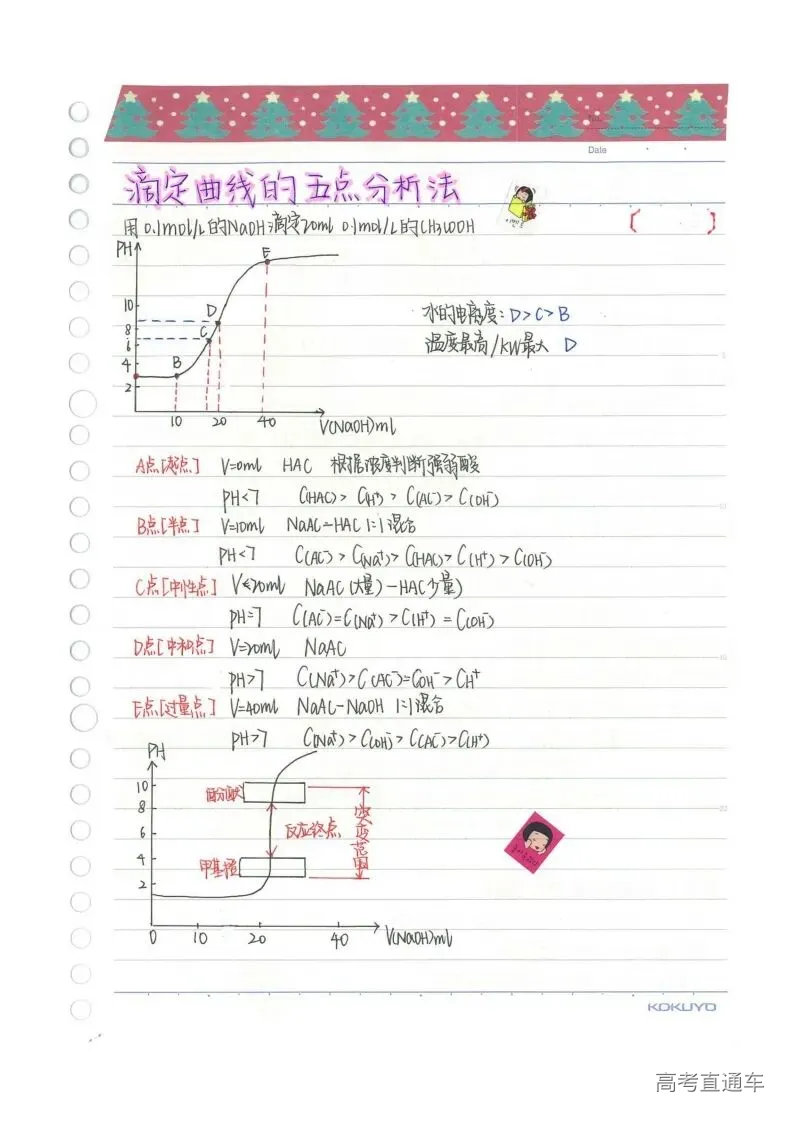 No.
Date
滴定曲线的五点分析法
用0.1mol/L的NaOH滴定20ml 0.1mol/L的CH3COOH
PH
E
10
D
8
C
6
4
B
2
10 20 40 V(NaOH)ml
水的电离度:D>C>B
温度最高/KW最大 D
A点[起点] V=0ml HAC 根据浓度判断强弱酸
PH<7 C(HAC)> C(H+)> C(AC-)>C(OH-)
B点[半点] V=10ml NaAC-HAC 1:1混合
PH<7 C(AC-)>C(Na+)>C(HAC)>C(H+)>C(OH-)
C点[中性点] V<20ml NaAC(大量)-HAC(少量)
PH=7 C(AC-)=C(Na+)>C(H+)=C(OH-)
D点[中和点] V=20ml NaAC
PH>7 C(Na+)>C(AC-)=COH->CH+
E点[过量点] V=40ml NaAC-NaOH 1:1混合
PH>7 C(Na+)>C(OH-)>C(AC-)>C(H+)
PH
10
8
6
4
2
反应终点
突变范围
甲基橙
0 10 20 40 V(NaOH)ml
KOKUYO
高考直通车